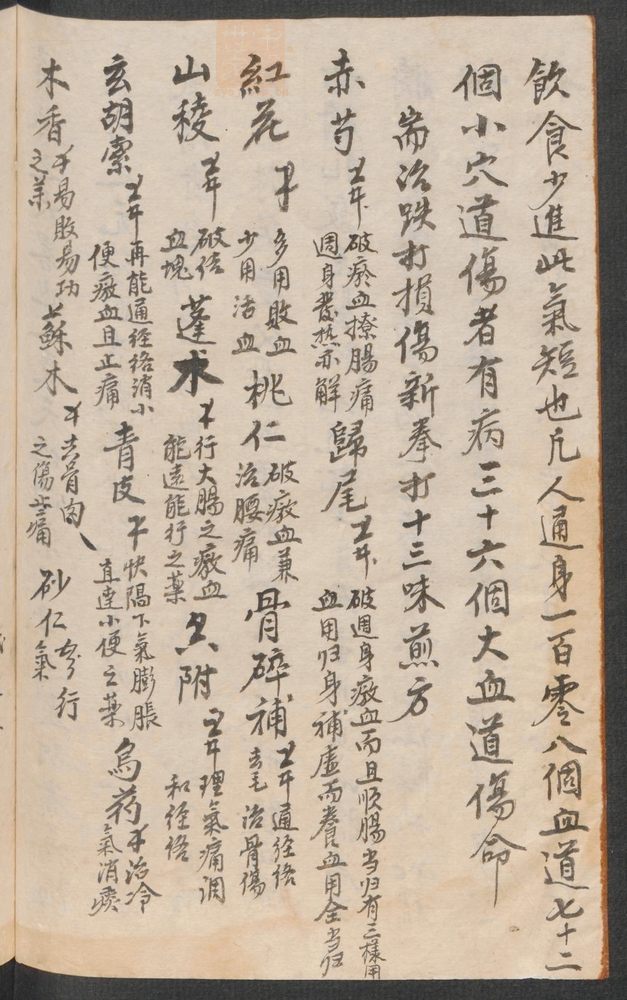 飲食少進此氣短也凡人通身一百零八個血道七十二
個小穴道傷者有病三十六個大血道傷命
耑治跌打損傷新拳打十三味煎方
赤芍 破瘀血撩腸痛 週身發熱亦解 歸尾 破週身瘀血而且順腸当归有三樣用 血用归身補虛而養血用全当归
紅花 多用敗血 少用活血 桃仁 破瘀血兼 治腰痛 骨碎補 通經絡 去毛治骨傷
山稜 破結 血塊 蓬术 行大腸之瘀血 能遠能行之藥 附 理氣痛調 和經絡
玄胡索 再能通經絡消小 便瘀血且止痛 青皮 快隔下氣膨脹 直達小便之藥 烏药 治冷 氣消痰
木香 易散易功 之藥 蘇木 去骨肉 之傷止痛 砂仁 行 氣